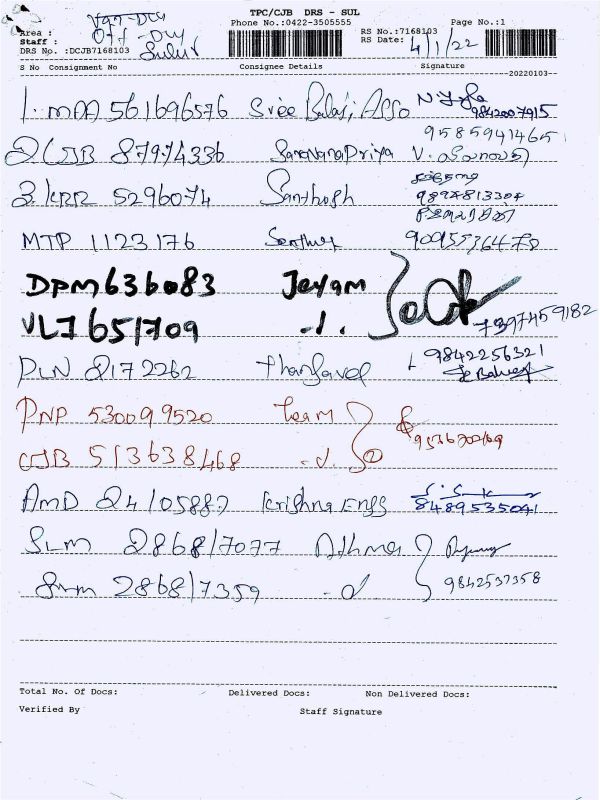 TPC/CJB DRS - SUL
Phone No.:0422-3505555 Page No.:1
Area :
Staff : Off - Dly
DRS No. :DCJB7168103 Sulur
RS No:7168103
RS Date: 4/1/22
S No Consignment No Consignee Details Signature
20220103-
1. MAA 561696576 Sree Balaji Asso 9842007915
9585941465
2 CJB 87974336 Saravana Priya V.
3. KRR 5296074 Santhosh 9894813304
MTP 1123176 Senthur
DPM 636083 Jeyam
VLJ 651709 -d. 7397459182
PLN 8172262 Thangavel 9842256321
PNP 530099520 Team
CJB 513638468 -d.
AMD 24105882 Krishna Engg 8489535041
SLM 286817077 Athma
SLM 286817359 -d 9842537358
Total No. Of Docs: Delivered Docs: Non Delivered Docs:
Verified By Staff Signature